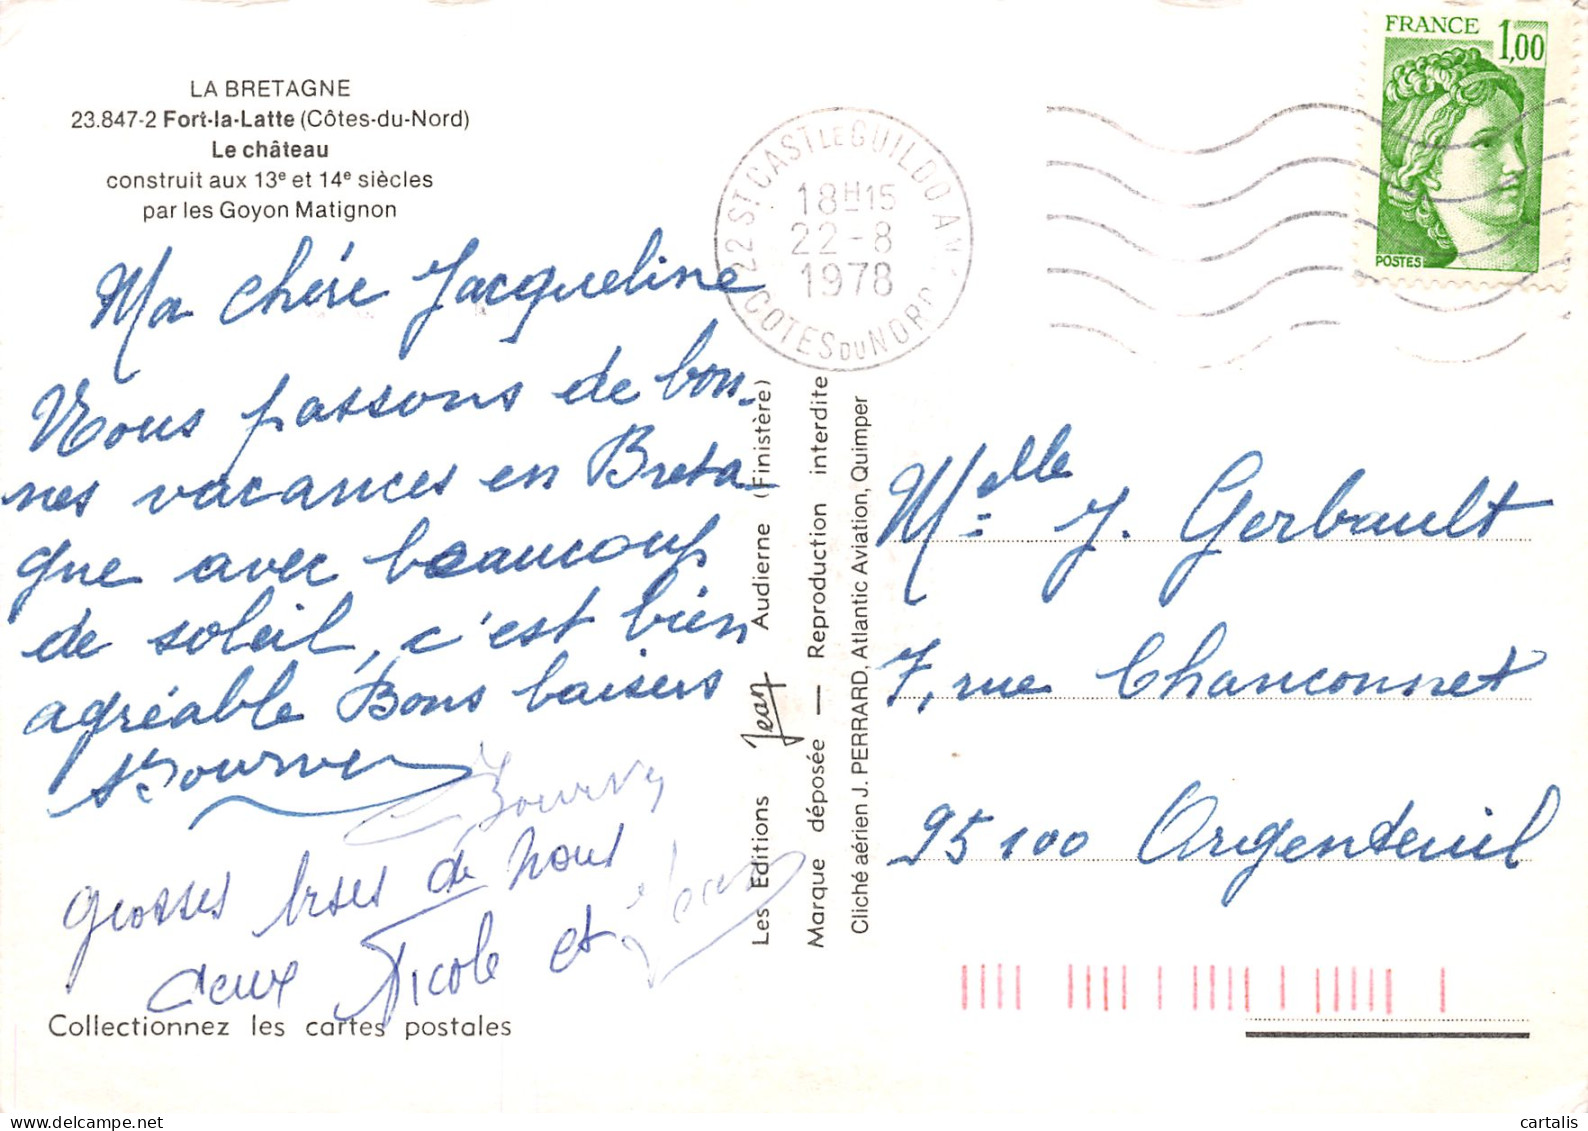 LA BRETAGNE
23.847-2 Fort-la-Latte (Côtes-du-Nord)
Le château
construit aux 13e et 14e siècles
par les Goyon Matignon
Ma chère Jacqueline
Nous passons de bon-
nes vacances en Breta-
gne avec beaucoup
de soleil, c'est bien
agréable Bons baisers
grosses bises de nous
deux Nicole et Jean
Collectionnez les cartes postales
Les Editions Jean Audierne (Finistère)
Marque déposée — Reproduction interdite
Cliché aérien J. PERRARD, Atlantic Aviation, Quimper
22 ST CAST LE GUILDO AN.
18H15
22-8
1978
COTES DU NORD
FRANCE 1,00
POSTES
Melle J. Gerbault
7, rue Chanconnet
95100 Argenteuil
delcampe.net
cartalis